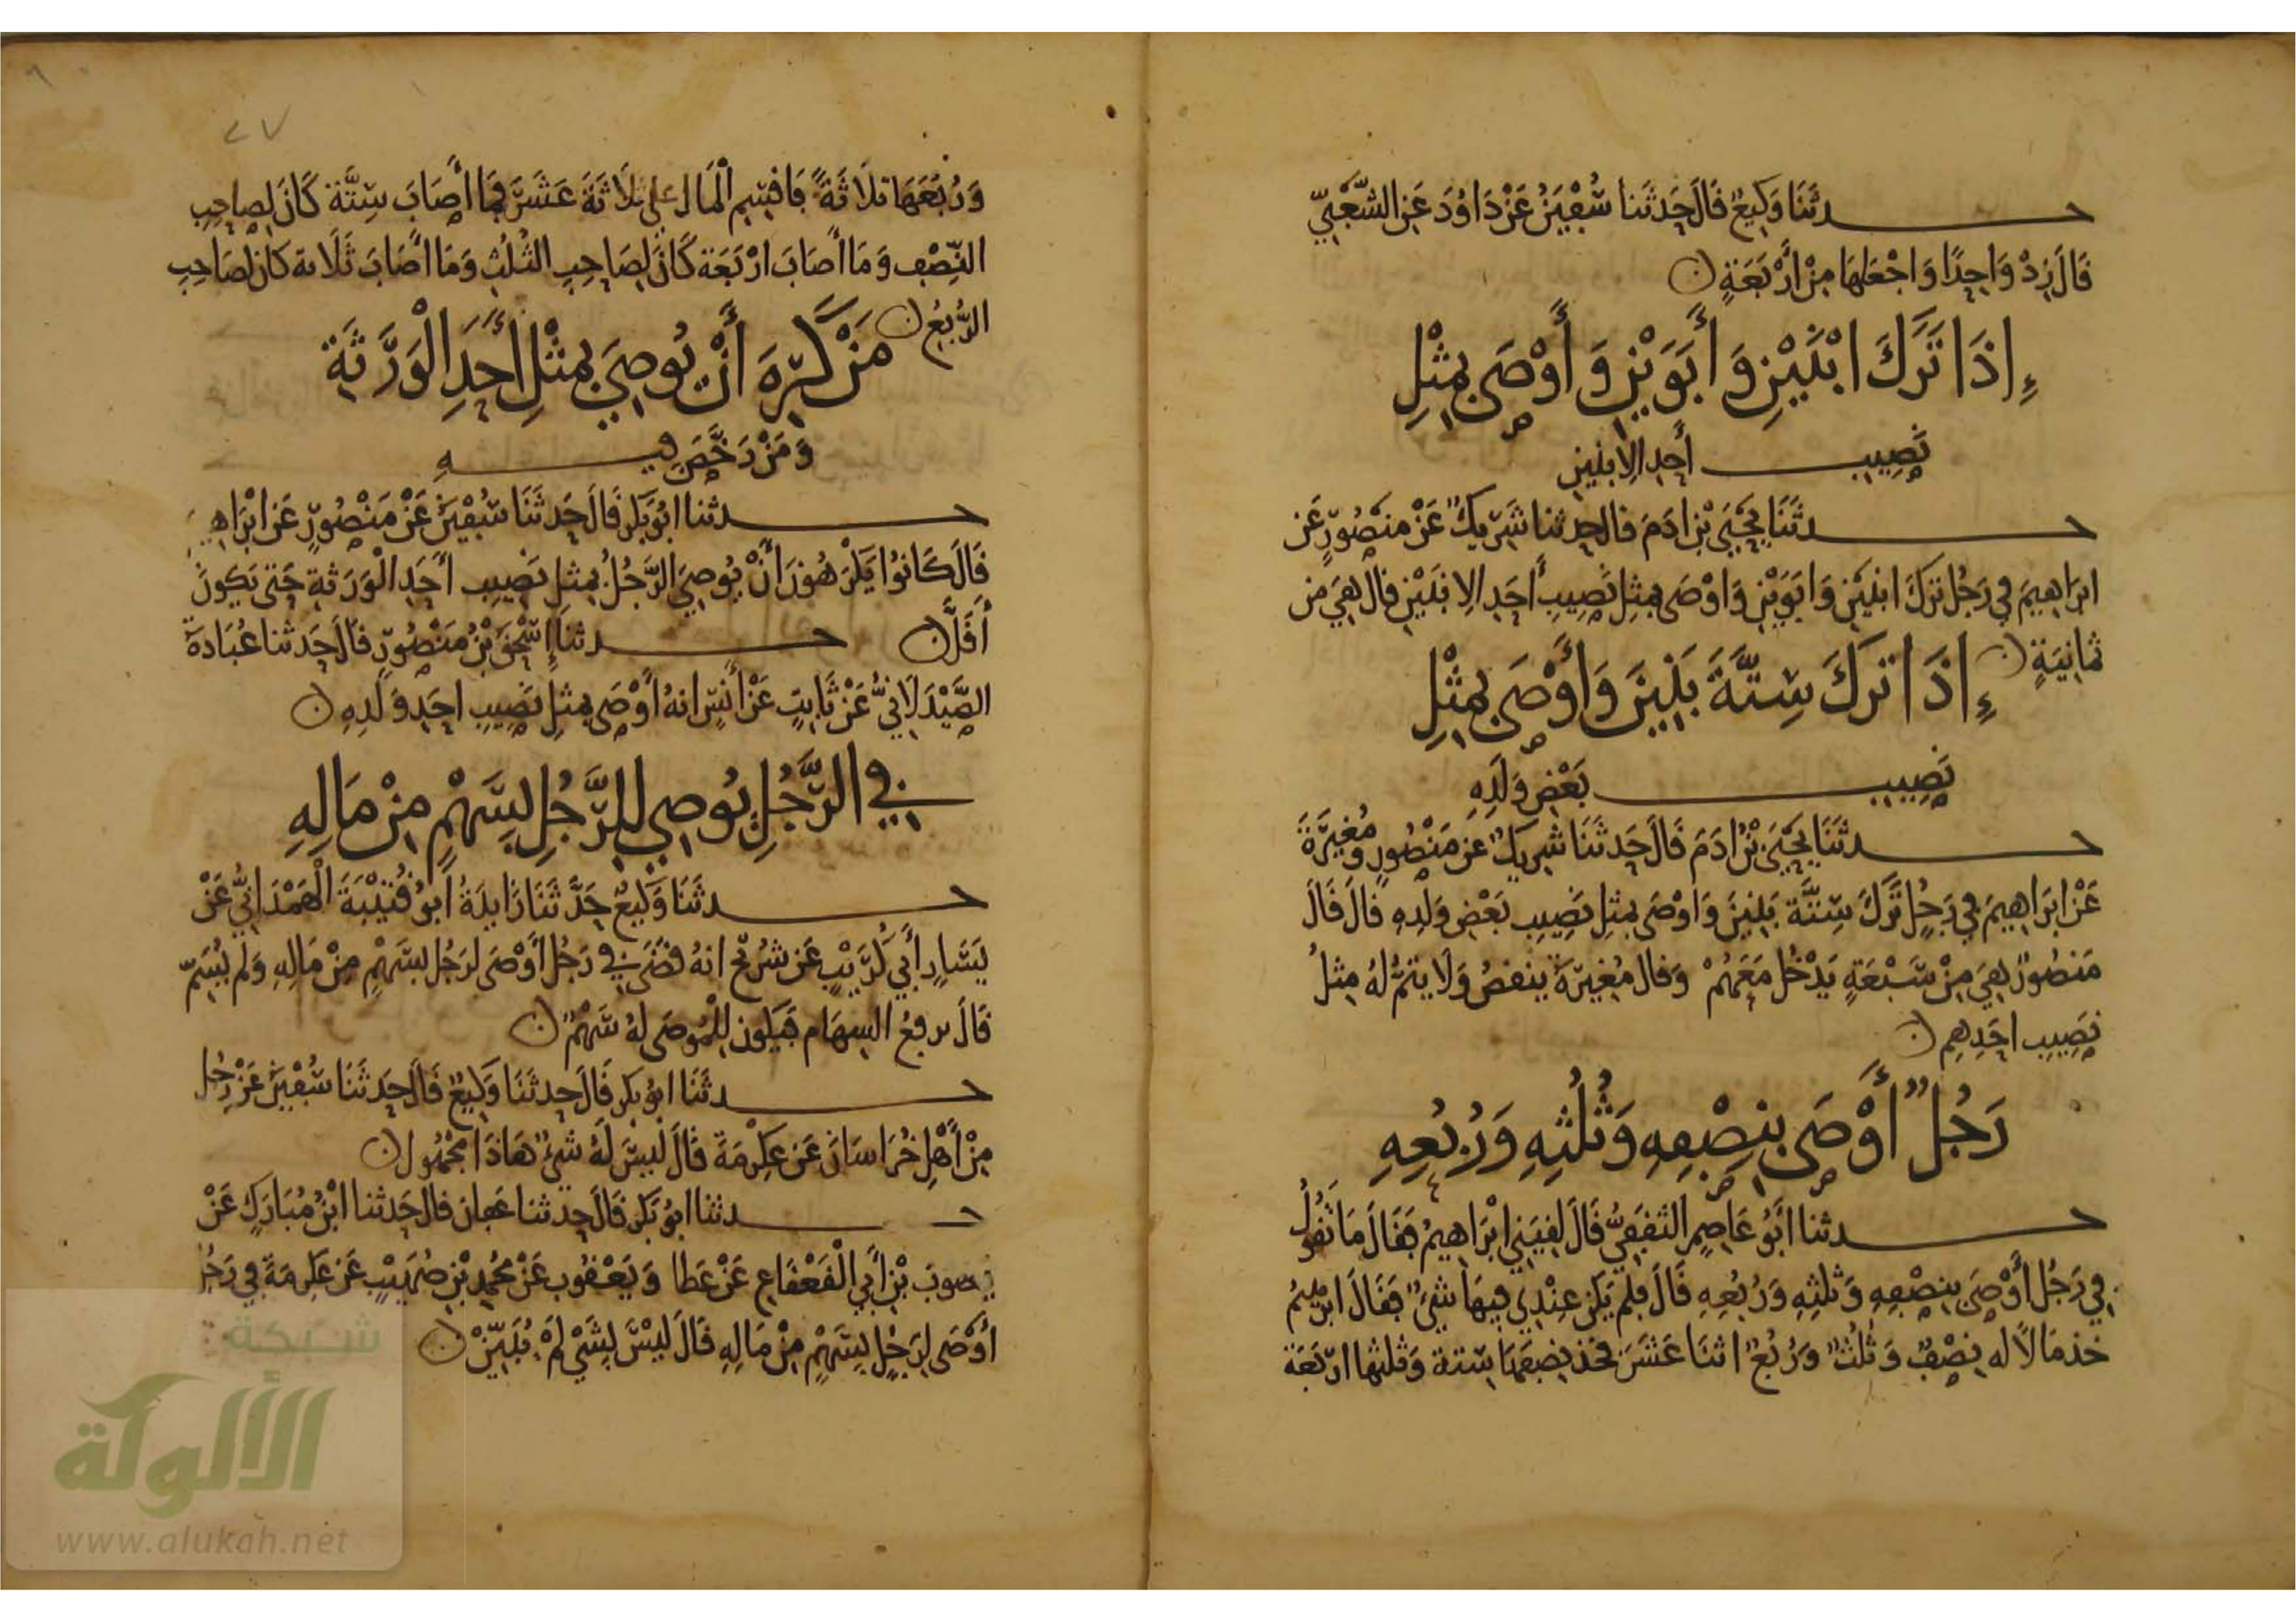 حدثنا وَكِيعٌ قَالَ حَدثَنا سُفْيَنُ عَنْ دَاوُدَ عَنِ الشَّعْبِيِّ
قَالَ زِدْ وَاحِدًا وَاجْعَلهَا مِنْ أَرْبَعَةٍ
إِذَا تَرَكَ ابْنَيْنِ وَأَبَوَيْنِ وَأَوْصَى بِمِثْلِ
نَصِيبِ أَحَدِ الِابنَينِ
حدثَنَا يَحْيَى بْنُ ادَمَ قال حدثنا شَرِيكٌ عَنْ مَنصُورٍ عَن
ابرَاهِيمَ فِي رَجُلٍ تَرَكَ ابنَيْنِ وَابَوَيْنِ وَاوْصَى بِمثِلِ نَصِيبِ أَحَدِ الِابنَيْنِ قال هِيَ من
ثمانِيَةٍ
إِذَا تَرَكَ سِتَّةَ بَنِينَ وَأَوْصَى بِمِثْلِ
نَصِيبِ بَعْضِ وَلَدِهِ
حدثَنَا يَحْيَى بْنُ ادَمَ قَالَ حَدثَنَا شَرِيكٌ عَن مَنْصُورٍ ومُغِيرَةَ
عَنْ ابرَاهِيمَ فِي رَجُلٍ تَرَكَ سِتَّةَ بَنِينَ وَاوْصَى بمثِلِ نَصِيبِ بَعْضِ وَلَدِهِ قالَ قَالَ
مَنصُورٌ هِيَ مِنْ سَبْعَةٍ يَدْخُلُ مَعَهُمْ وَقال مُغِيرَةُ ينقصُ وَلَا يتمُّ لهُ مِثلُ
نَصِيبِ احَدِهِم
رَجُلٌ أَوْصَى بِنِصْفِهِ وَثُلُثِهِ وَرُبُعِهِ
حدثنا أَبُو عَاصِمٍ الثقَفِيُّ قَالَ لقِيَنِي ابْرَاهِيمُ فَقَالَ مَا تَقُولُ
فِي رَجُلٍ أَوْصَى بِنِصْفِهِ وَثلثِهِ وَرُبُعِهِ قَالَ فلم يَكن عِنْدِي فِيهَا شَيْءٌ فَقَالَ ابرهيمُ
خذ مَالًا له نِصْفٌ وَثُلُثٌ وَرُبُعٌ اثنَا عَشَرَ فخذ نِصفَهَا سِتة وَثلثها ارْبَعَة
وَرُبُعَهَا ثلَاثَةً فَاقسِم الْمَالَ عَلَى ثلَاثَةَ عَشَرَ فمَا أَصَابَ سِتَّة كَانَ لِصاحِبِ
النِّصْفِ وَمَا أَصَابَ ارْبَعَة كَانَ لِصَاحِبِ الثُّلُثِ وَمَا أَصَابَ ثَلَاثة كان لِصَاحِبِ
الرُّبعِ
مَنْ كَرِهَ أَنْ يُوصِيَ بِمِثْلِ أَحَدِ الْوَرَثَةِ
وَمَنْ رَخَّصَ فيهِ
حدثنا ابُو بَكر قَالَ حَدثَنَا سُفْيَنُ عَنْ مَنْصُورٍ عَن ابْرَاهِيمَ
قَالَ كَانُوا يَكْرَهُونَ أَنْ يُوصِيَ الرَّجُلُ بِمثلِ نَصِيبِ أَحَدِ الْوَرَثةِ حَتى يَكونَ
أَقَلَّ حدثنا إِسْحَقُ بْنُ مَنْصُورٍ قالَ حَدثنا عُبَادَةُ
الصَّيْدَلَانِيُّ عَنْ ثَابِتٍ عَنْ أَنَسٍ انهُ أَوْصَى بِمثلِ نَصِيبِ احَدِ وَلَدِهِ
فِي الرَّجُلِ يُوصِي لِلرَّجُلِ بِسَهْمٍ مِنْ مَالِهِ
حدثَنَا وَكِيعٌ حَدَّثَنَا زَايدَةُ أَبُو قُتَيْبَةَ الْهَمْدَانِيُّ عَنْ
يَسَارِ أَبِي كُرَيْبٍ عَن شُرَيْحٍ انهُ قضَى فِي رَجُلٍ أَوْصَى لرَجُلٍ بسَهْمٍ مِنْ مَالِهِ وَلَم يُسَمِّ
قَالَ ترفعُ السِهَام فَيَكون لِلْمُوصَى لهُ سَهْمٌ
حدثَنَا ابو بكر قَالَ حدثَنَا وَكِيعٌ قَالَ حَدثَنَا سُفْيَنُ عَنْ رَجُلٍ
مِنْ أَهْلِ خُرَاسَانَ عَن عِكْرِمَةَ قَالَ لَيْسَ لَهُ شَيْءٌ هَاذَا مَجْهُول
حدثنا ابُو بَكر قَالَ حدثنا عفان قال حَدثنا ابْنُ مُبَارَكٍ عَنْ
يعقوبَ بْنِ أَبِي الْقَعْقَاعِ عَنْ عَطا وَيَعْقُوب عَنْ مُحَمدِ بْنِ صُهَيْبٍ عَن عِكرِمَة فِي رَجُل
أَوْصَى لِرَجُلٍ بِسَهْمٍ مِنْ مَالِهِ قَالَ لَيْسَ بِشَيْءٍ لَمْ يُبَيِّنْ
شبكة
الألوكة
www.alukah.net